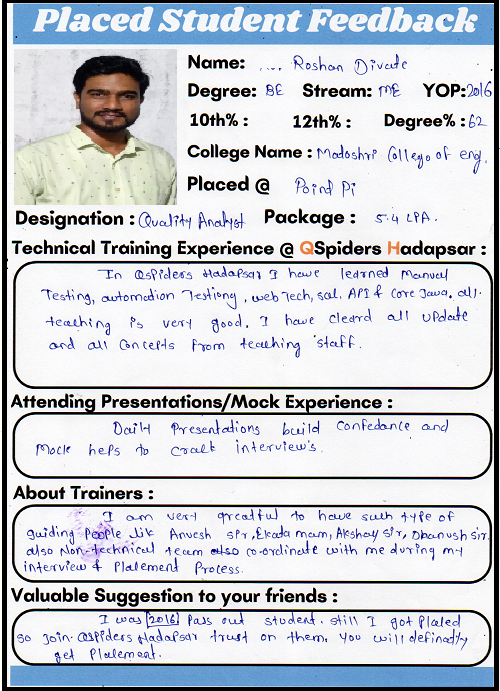 Placed Student Feedback
Name: .... Roshan Divate
Degree: BE Stream: ME YOP: 2016
10th% : 12th% : Degree% : 62
College Name : Matoshri College of eng.
Placed @ Point Pi
Designation : Quality Analyst Package : 5.4 LPA.
Technical Training Experience @ QSpiders Hadapsar :
In Qspiders Hadapsar I have learned Manual
Testing, automation Testiong, web Tech, sql, API & Core Java. all
teaching is very good. I have cleard all update
and all Concepts from teaching staff.
Attending Presentations/Mock Experience :
Daily Presentations build Confedance and
Mock heps to crack interview's.
About Trainers :
I am very greatful to have such type of
guiding people lik Anvesh sir, Ekata mam, Akshay sir, Dhanush sir.
also Non-technical team also co-ordinate with me during my
interview & Placement Process.
Valuable Suggestion to your friends :
I was [2016] Pass out student. still I got Placed
so join Qspiders Hadapsar trust on them. You will definatly
get Placement.